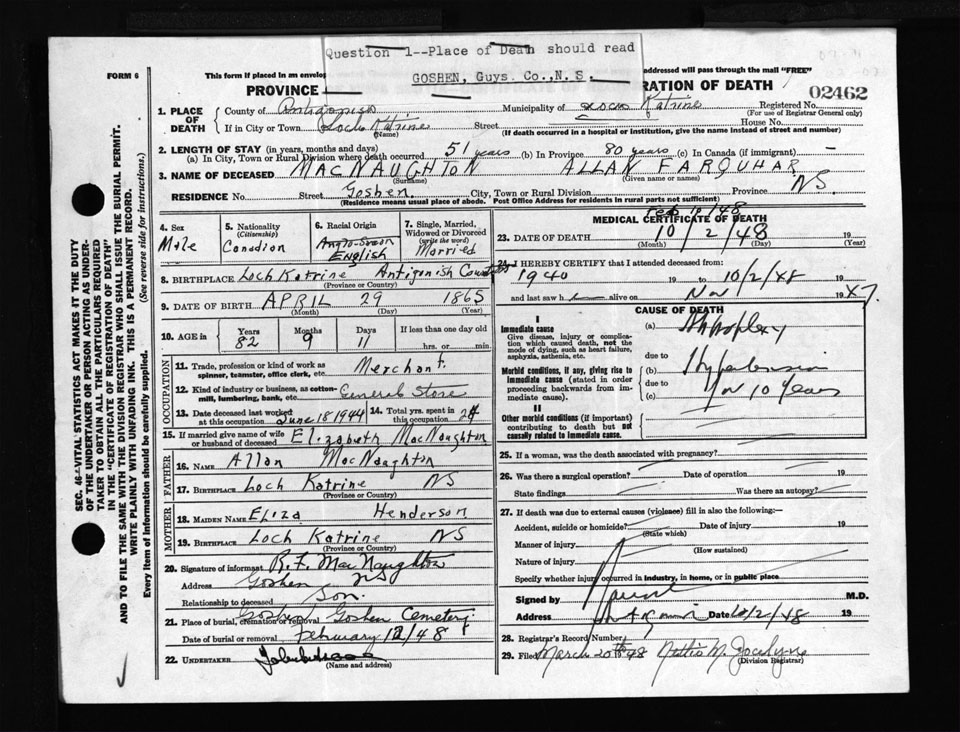 Question 1--Place of Death should read
GOSHEN, Guys. Co.,N.S.
FORM 6
This form if placed in an envelope
addressed will pass through the mail "FREE"
PROVINCE
RATION OF DEATH
02462
1. PLACE OF DEATH
County of Antigonish
Municipality of Loch Katrine
Registered No.
(For use of Registrar General only)
If in City or Town Loch Katrine (Name)
Street
House No.
(If death occurred in a hospital or institution, give the name instead of street and number)
2. LENGTH OF STAY (in years, months and days)
(a) In City, Town or Rural Division where death occurred 51 years (b) In Province 80 years (c) In Canada (if immigrant) —
3. NAME OF DECEASED MACNAUGHTON (Surname) ALLAN FARQUHAR (Given name or names)
RESIDENCE No. Street Goshen City, Town or Rural Division Province NS.
(Residence means usual place of abode. Post Office Address for residents in rural parts not sufficient)
4. Sex
Male
5. Nationality (Citizenship)
Canadian
6. Racial Origin
English
7. Single, Married, Widowed or Divorced (write the word)
Married
8. BIRTHPLACE Loch Katrine Antigonish County
(Province or Country)
9. DATE OF BIRTH APRIL 29 1865
(Month) (Day) (Year)
10. AGE in
Years 82
Months 9
Days 11
If less than one day old
hrs. or min.
OCCUPATION
11. Trade, profession or kind of work as spinner, teamster, office clerk, etc. Merchant.
12. Kind of industry or business, as cotton-mill, lumbering, bank, etc. General Store
13. Date deceased last worked at this occupation June 18 1944
14. Total yrs. spent in this occupation 24
15. If married give name of wife or husband of deceased Elizabeth MacNaughton
FATHER
16. NAME Allan MacNaughton
17. BIRTHPLACE Loch Katrine NS
(Province or Country)
MOTHER
18. MAIDEN NAME Eliza Henderson
19. BIRTHPLACE Loch Katrine NS
(Province or Country)
20. Signature of informant R.F. MacNaughton
Address Goshen NS
Relationship to deceased Son.
21. Place of burial, cremation or removal Goshen Goshen Cemetery
Date of burial or removal February 12/48
22. UNDERTAKER
(Name and address)
MEDICAL CERTIFICATE OF DEATH
Feb 10/48
23. DATE OF DEATH 10/2/48
(Month) (Day) (Year)
24. I HEREBY CERTIFY that I attended deceased from:
1940 19 to 10/2/48 19
and last saw h alive on Nov 1947.
CAUSE OF DEATH
I
Immediate cause
Give disease, injury or complication which caused death, not the mode of dying, such as heart failure, asphyxia, asthenia, etc.
(a) Apoplexy
due to
Morbid conditions, if any, giving rise to immediate cause (stated in order proceeding backwards from immediate cause).
(b) Hypertension
due to
(c) 10 Years
II
Other morbid conditions (if important) contributing to death but not causally related to immediate cause.
25. If a woman, was the death associated with pregnancy?
26. Was there a surgical operation? Date of operation 19
State findings Was there an autopsy?
27. If death was due to external causes (violence) fill in also the following:—
Accident, suicide or homicide? Date of injury 19
(State which)
Manner of injury
(How sustained)
Nature of injury
Specify whether injury occurred in industry, in home, or in public place
Signed by M.D.
Address Date 10/2/48 19
28. Registrar's Record Number
29. Filed March 20th 48
(Division Registrar)
SEC. 46—VITAL STATISTICS ACT MAKES IT THE DUTY
OF THE UNDERTAKER OR PERSON ACTING AS UNDER-
TAKER TO OBTAIN ALL THE PARTICULARS REQUIRED
IN THE "CERTIFICATE OF REGISTRATION OF DEATH"
AND TO FILE THE SAME WITH THE DIVISION REGISTRAR WHO SHALL ISSUE THE BURIAL PERMIT.
WRITE PLAINLY WITH UNFADING INK. THIS IS A PERMANENT RECORD.
Every item of Information should be carefully supplied. (See reverse side for instructions.)